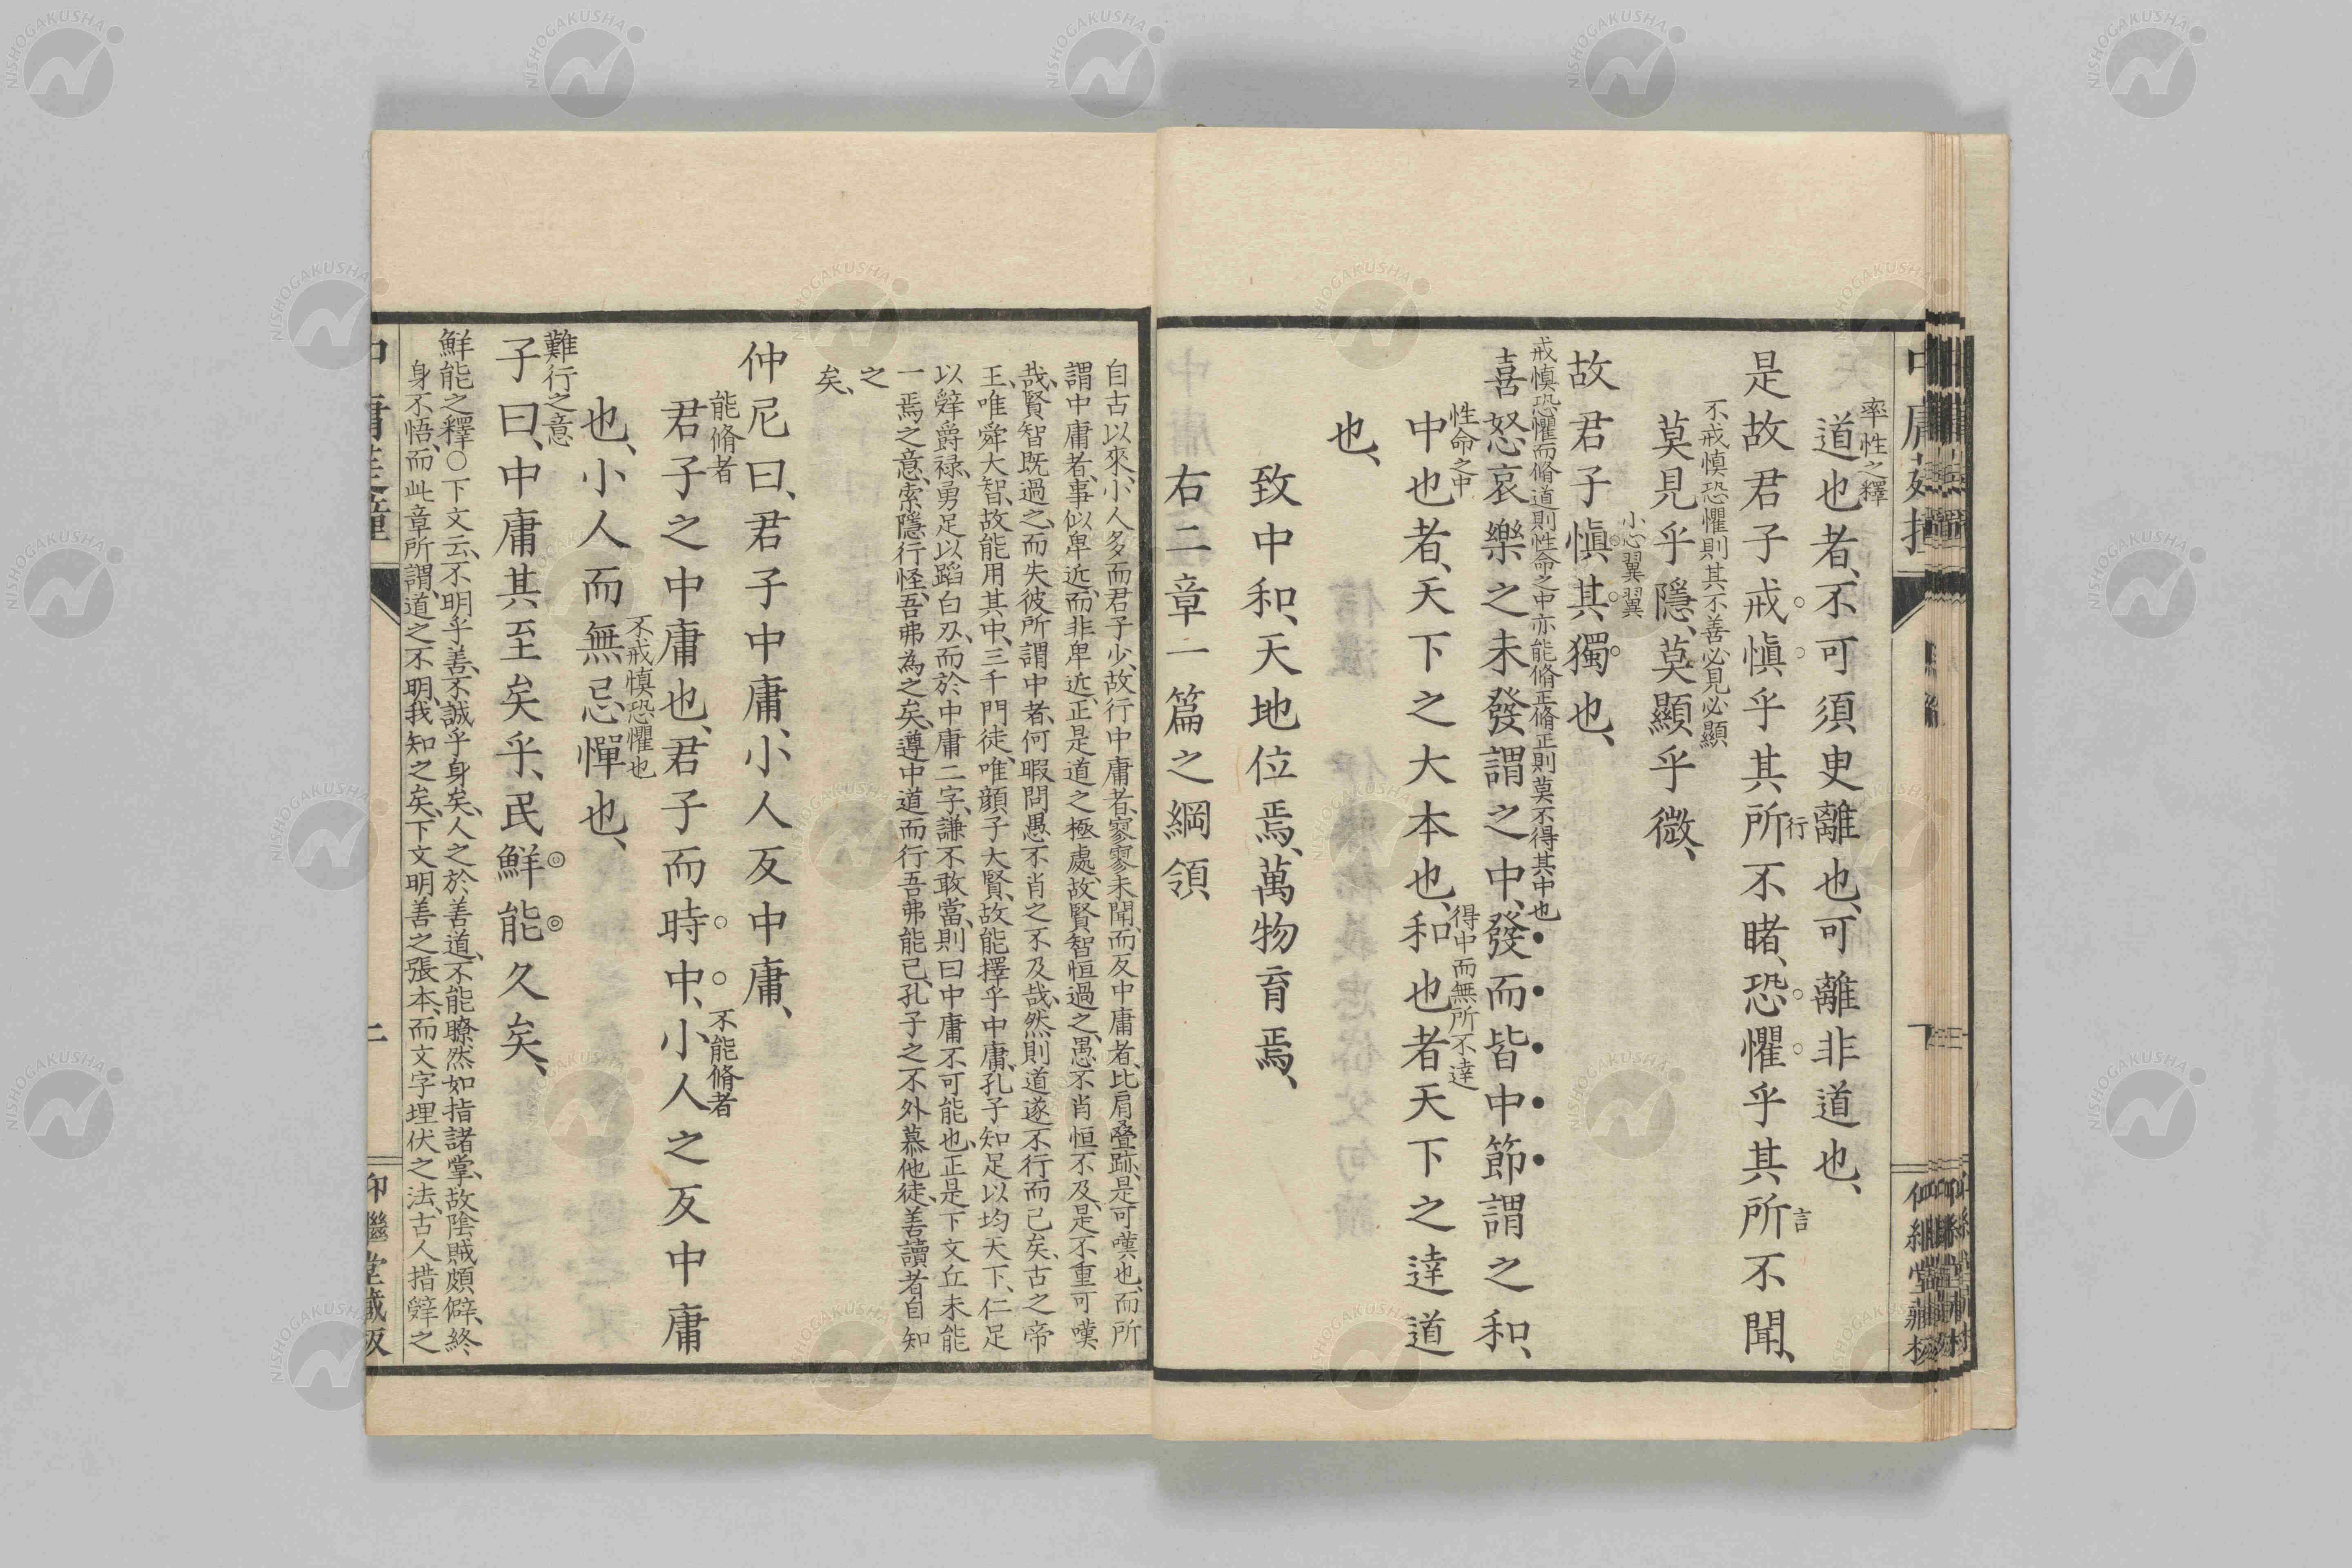 率性之釋
道也者、不可須臾離也、可離非道也、
是故君子戒愼乎其所不睹、恐懼乎其所不聞、
行
言
不戒慎恐懼則其不善必見必顯
莫見乎隱、莫顯乎微、
小心翼翼
故君子愼其獨也、
戒慎恐懼而脩道則性命之中亦能脩正脩正則莫不得其中也
喜怒哀樂之未發謂之中、發而皆中節謂之和、
性命之中
得中而無所不達
中也者、天下之大本也、和也者天下之達道
也、
致中和、天地位焉、萬物育焉、
右二章一篇之綱領
自古以來、小人多而君子少、故行中庸者、寥寥未聞、而反中庸者、比肩疊跡、是可嘆也、而所
謂中庸者、事似卑近、而非卑近、正是道之極處、故賢智恒過之、愚不肖恒不及、是不重可嘆
哉、賢智既過之、而失彼所謂中者、何暇問愚不肖之不及哉、然則道遂不行而已矣、古之帝
王、唯舜大智、故能用其中、三千門徒、唯顔子大賢、故能擇乎中庸、孔子知足以均天下、仁足
以辤爵禄、勇足以蹈白刃、而於中庸二字、謙不敢當、則曰中庸不可能也、正是下文丘未能
一焉之意、索隱行怪、吾弗為之矣、遵中道而行吾弗能已、孔子之不外慕他徒、善讀者自知
之
矣、
仲尼曰、君子中庸、小人反中庸、
能脩者
不能脩者
君子之中庸也、君子而時中、小人之反中庸
不戒慎恐懼也
也、小人而無忌憚也、
難行之意
子曰、中庸其至矣乎、民鮮能久矣、
鮮能之釋○下文云、不明乎善、不誠乎身矣、人之於善道、不能瞭然如指諸掌、故陰賊頗僻、終
身不悟、而此章所謂、道之不明、我知之矣、下文明善之張本、而文字埋伏之法、古人措辤之